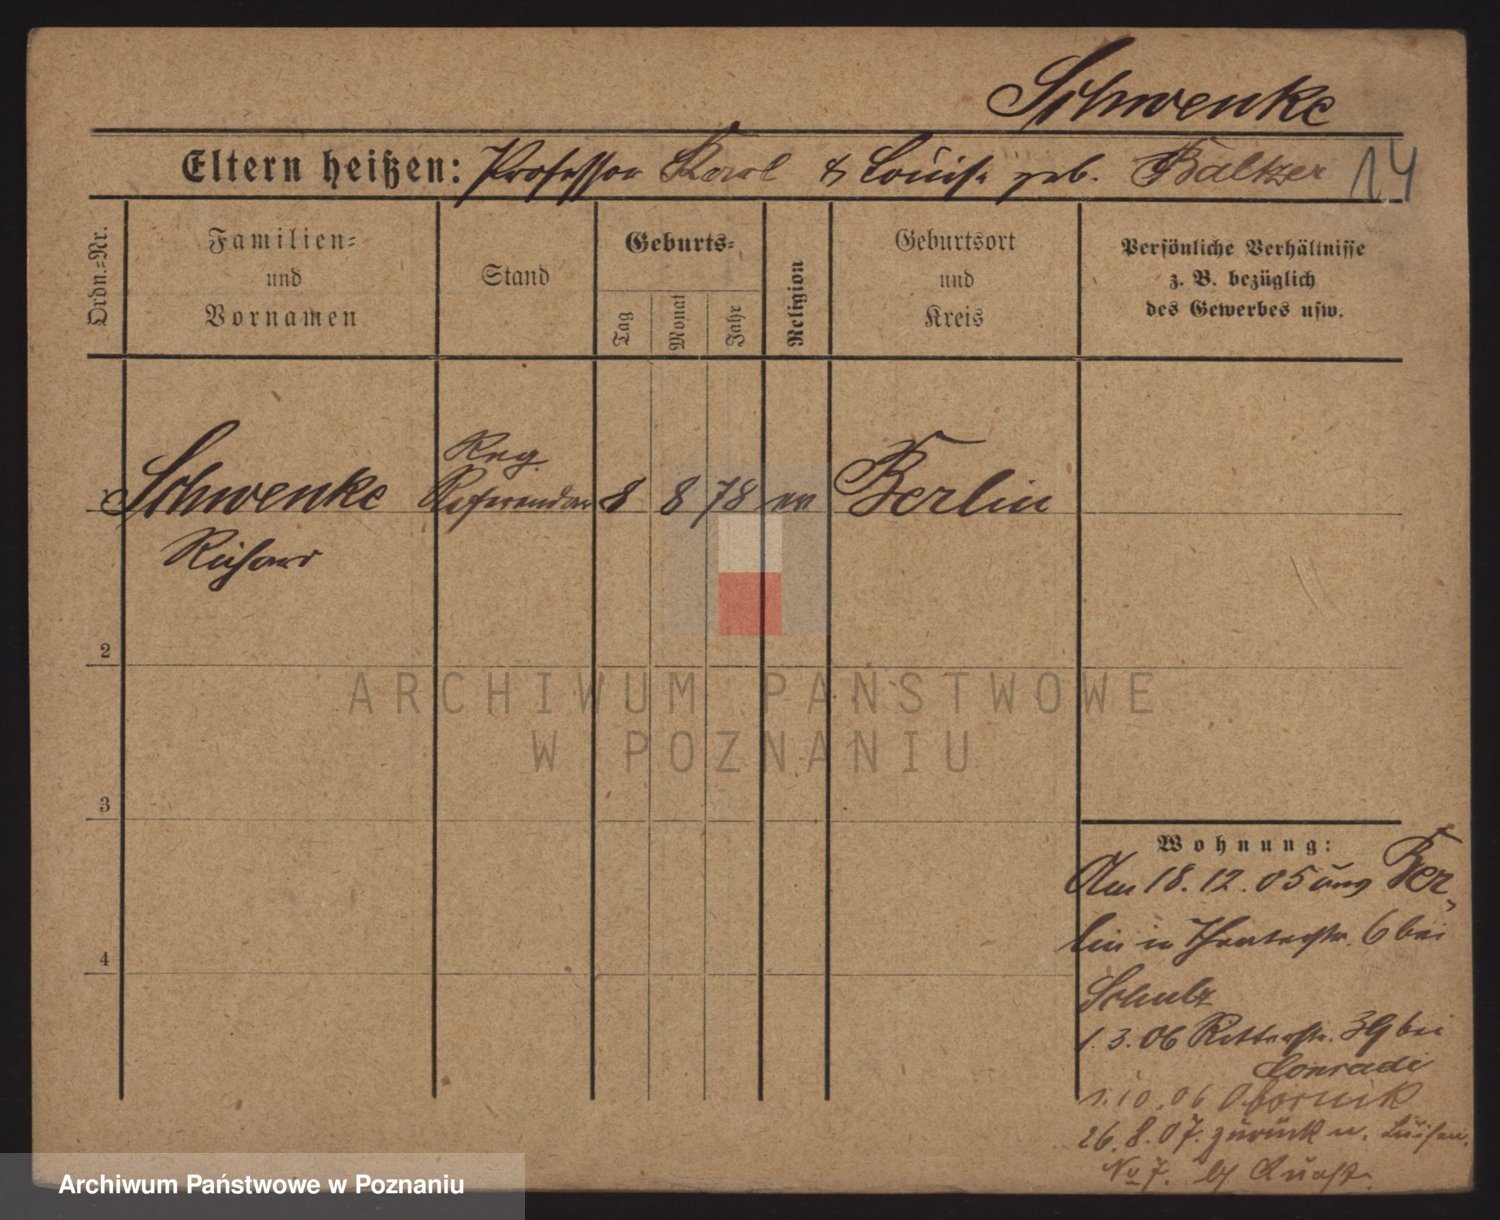 Schwenke
Eltern heißen: Professor Karl & Louise geb. Baltzer 14
Ordn.-Nr.
Familien- und Vornamen
Stand
Geburts-
Tag
Monat
Jahr
Religion
Geburtsort und Kreis
Persönliche Verhältnisse
z. B. bezüglich
des Gewerbes usw.
Schwenke Reg. Referendar 8 8 78 ev Berlin
Richard
2
3
4
Wohnung:
Am 18. 12. 05 aus Ber-
lin in Theaterstr. 6 bei
Schulz
1. 3. 06 Ritterstr. 39 bei
Conradi
1. 10. 06 Obornik
26. 8. 07. zurück n. Luisen
No 7. b/
ARCHIWUM PAŃSTWOWE
W POZNANIU
Archiwum Państwowe w Poznaniu